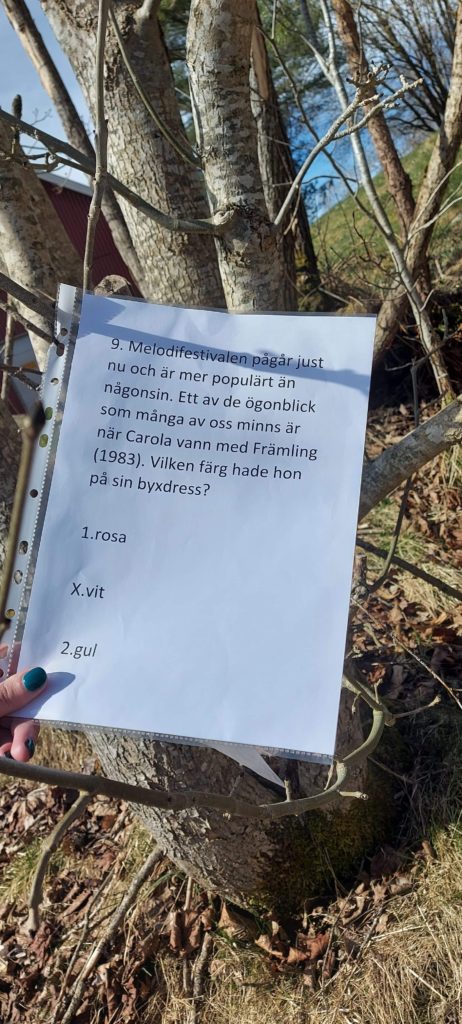 9. Melodifestivalen pågår just
nu och är mer populärt än
någonsin. Ett av de ögonblick
som många av oss minns är
när Carola vann med Främling
(1983). Vilken färg hade hon
på sin byxdress?
1.rosa
X.vit
2.gul